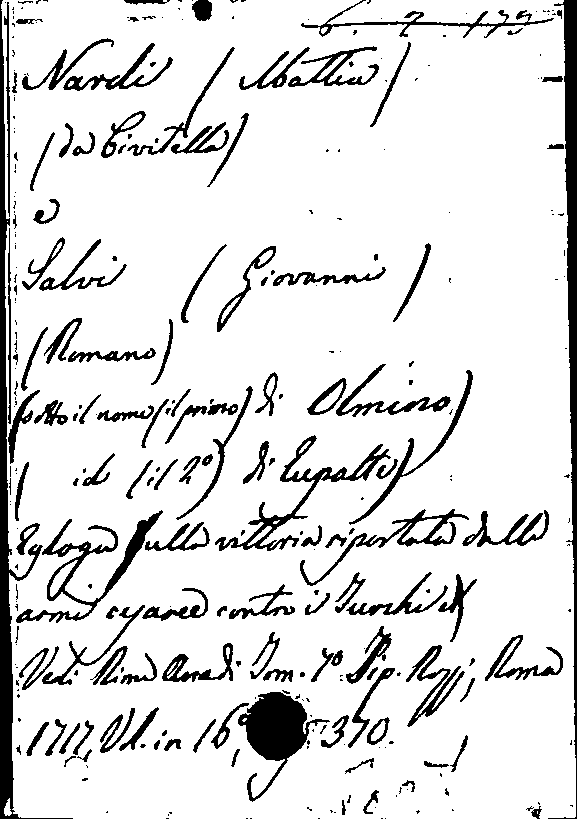 6. 2. 173
Nardi (Mattia)
(da Civitella)
e
Salvi (Giovanni)
(Romano)
(sotto il nome (il primo) di Olmiro)
( id (il 2º) di Eupalte)
Egloga sulla vittoria riportata dalle
armi cesaree contro i Turchi
Vedi Rime Arcadi Tom. 7º Tip. Rossi, Roma
1717, Vol. in 16º, 370.